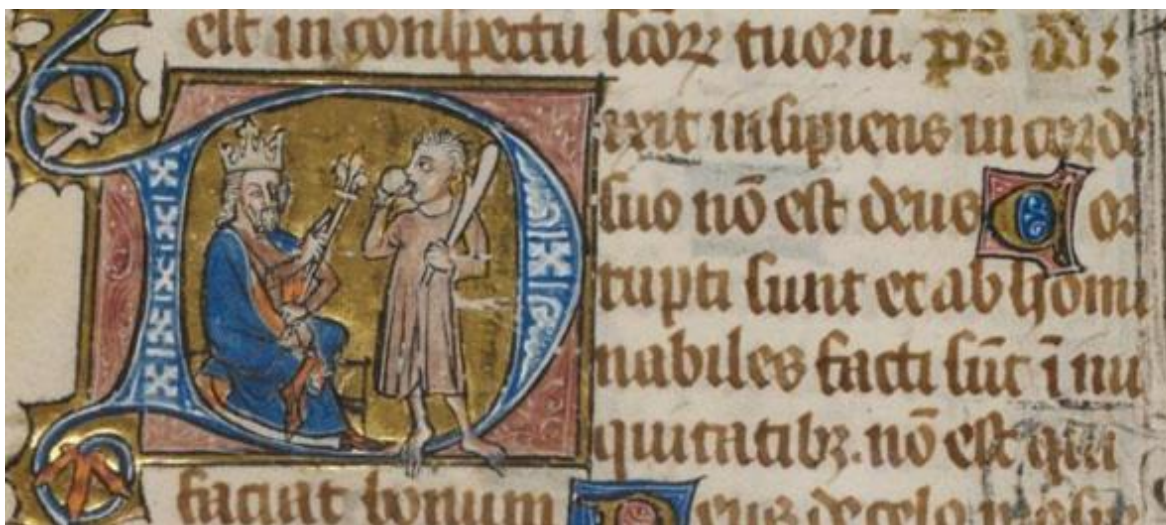 est in conspectu scoꝝ tuoꝝ. ps dd:
Dixit insipiens in corde
suo nō est deus Cor
rupti sunt et abhomi
nabiles facti sūt ī iniq
quitatibꝫ. nō est qui
faciat bonum Deus de celo